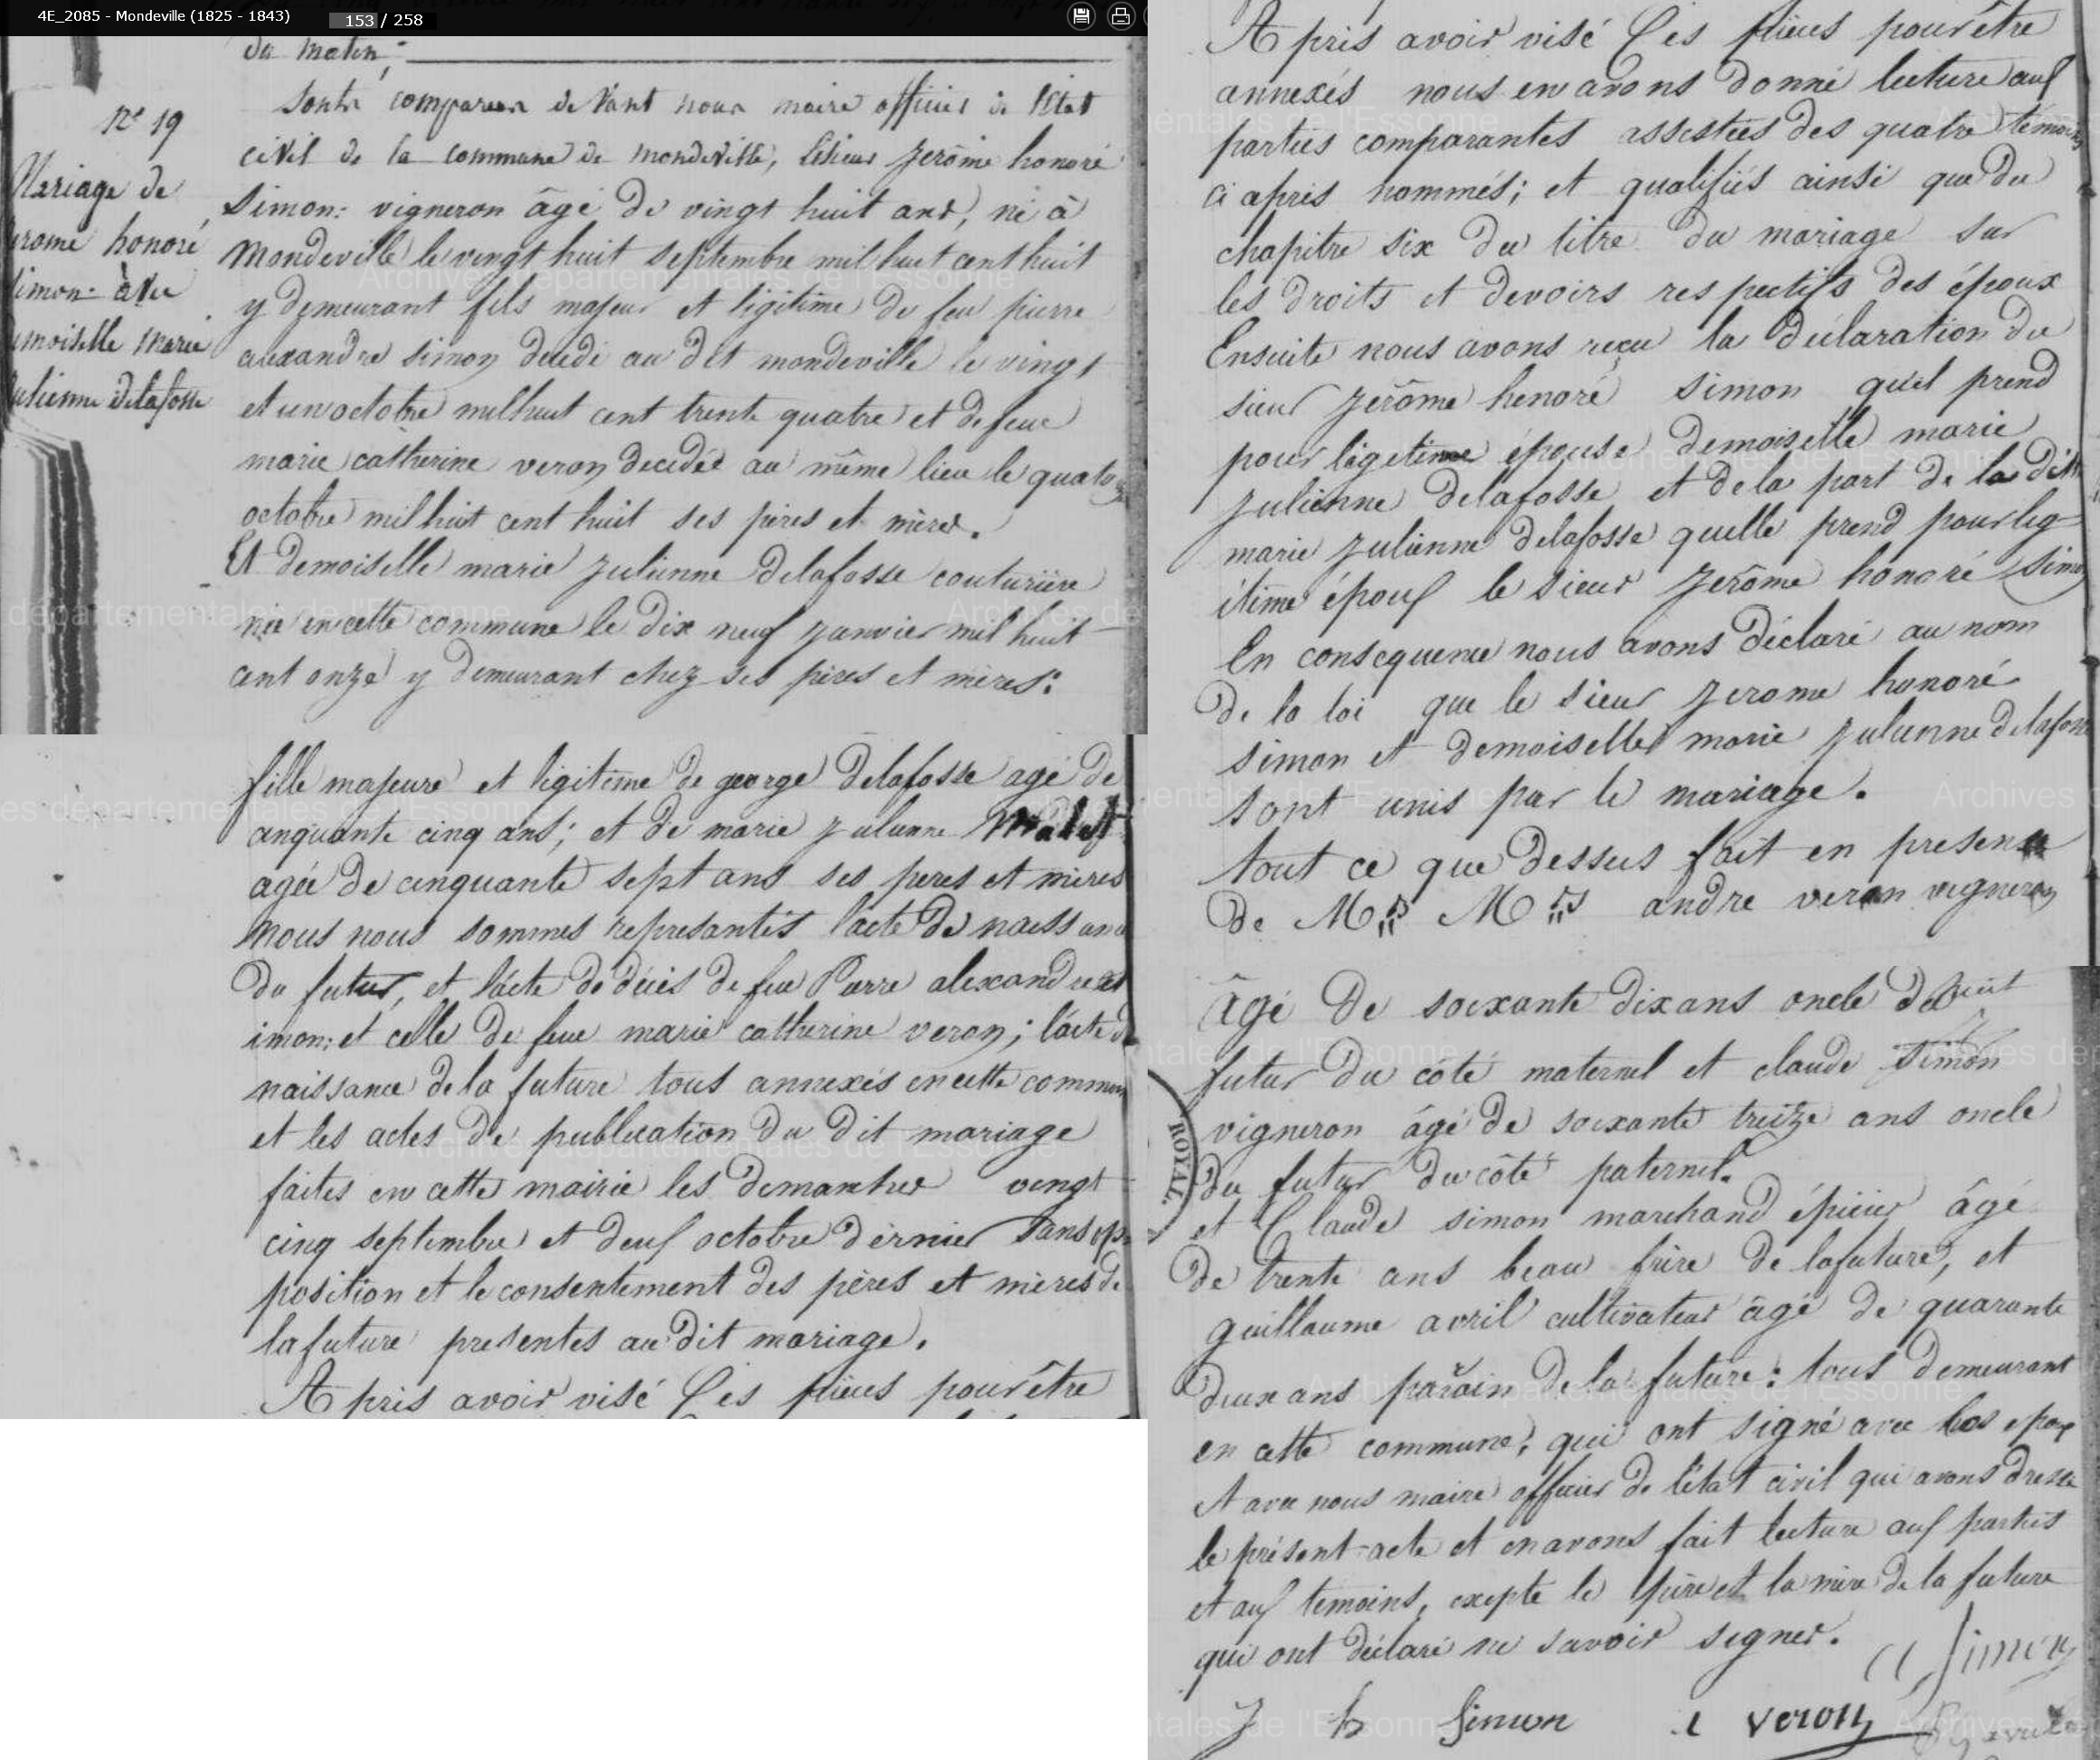 4E_2085 - Mondeville (1825 - 1843) 153 / 258
du matin;
nº 19
Mariage de
erome honoré
Simon: avec
emoiselle marie
ulienne Delafosse
Sont comparus devant nous maire officier de l'Etat
civil de la commune de mondeville, le sieur Jerôme honoré
Simon: vigneron âgé de vingt huit ans, né à
Mondeville le vingt huit septembre mil huit cent huit
y demeurant fils majeur et ligitime de feu pierre
alexandre simon décédé au dit mondeville le vingt
et un octobre mil huit cent trente quatre et de feue
marie catherine veron decedée au même lieu le quatorze
octobre mil huit cent huit ses pères et mères.
Et demoiselle marie Julienne Delafosse couturière
née en cette commune le dix neuf Janvier mil huit
cent onze y demeurant chez ses pères et mères:
fille majeure et ligitime de george Delafosse agé de
cinquante cinq ans; et de marie Julienne Malet
agée de cinquante sept ans ses peres et mères
Nous nous sommes représantés l'acte de naissance
du futur, et l'acte de décès de feu Pierre alexandre s
imon: et celle de feue marie catherine veron; l'acte de
naissance de la future tous annexés en cette commune
et les actes de publication du dit mariage
faites en cette mairie les dimanches vingt
cinq septembre et deux octobre dernier sans op
position et le consentement des pères et mères de
la future presentes au dit mariage.
Après avoir visé Ces pièces pour être
Après avoir visé Ces pièces pour être
annexés nous en avons donné lecture aux
parties comparantes assistées des quatre témoins
ci après nommés; et qualifiés ainsi que du
chapitre six du titre du mariage sur
les droits et devoirs respectifs des époux
Ensuite nous avons reçu la déclaration du
sieur Jerôme honoré simon qu'il prend
pour ligetime épouse demoiselle marie
Julienne Delafosse et de la part de la dite
marie Julienne delafosse quelle prend pour lég
itime époux le sieur Jerôme honoré Simon
En consequence nous avons déclaré au nom
de la loi que le sieur Jerome honoré
simon et demoiselle marie Julienne delafosse
sont unis par le mariage.
tout ce que dessus fait en presence
de Mrs Mrs andre veron vigneron
âgé de soixante dix ans oncle du
futur du côté maternel et claude Simon
vigneron âgé de soixante treize ans oncle
du futur du côté paternel.
et Claude simon marchand épicier âgé
de trente ans beau frère de la future, et
guillaume avril cultivateur âgé de quarante
deux ans parain de la future: tous demeurant
en cette commune, qui ont signé avec les epoux
et avec nous maire officier de l'état civil qui avons dressé
le présent acte et en avons fait lecture aux parties
et aux temoins, exepte le père et la mère de la future
qui ont déclaré ne savoir signer.
Simon
J h Simon
veron
ROYAL
Archives départementales de l'Essonne